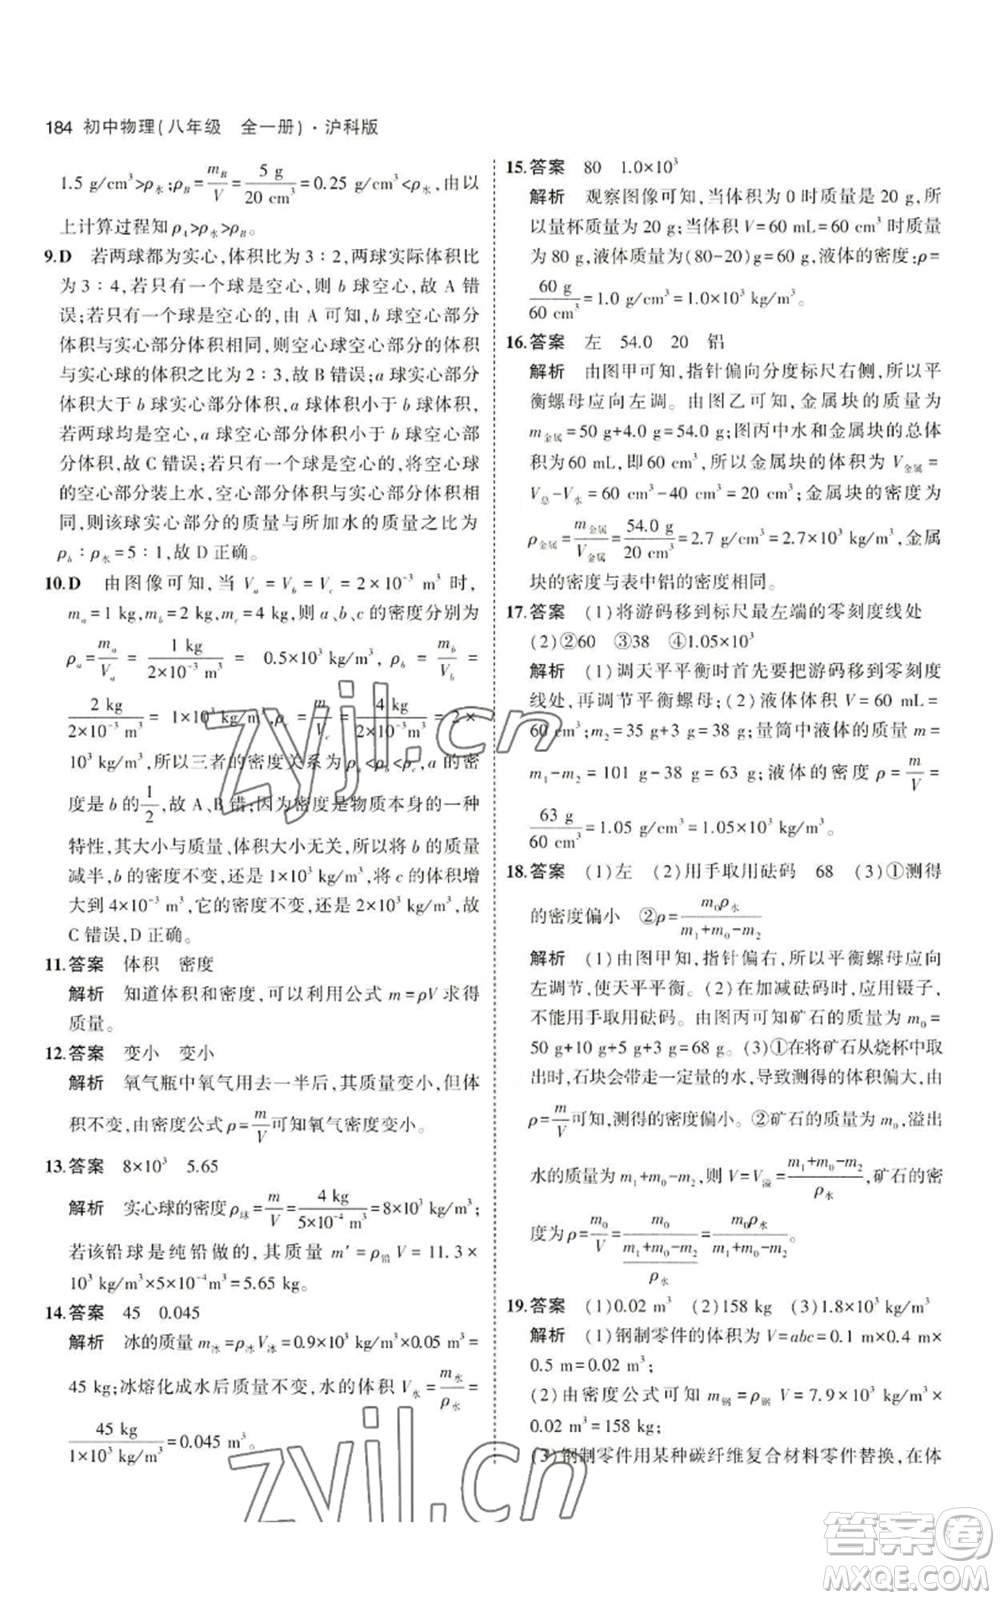 184 初中物理(八年级 全一册)·沪科版
1.5 g/cm³>ρ水;ρB=mB/V=5 g/20 cm³=0.25 g/cm³<ρ水,由以
上计算过程知ρA>ρ水>ρB。
9.D 若两球都为实心,体积比为3∶2,两球实际体积比
为3∶4,若只有一个球是空心,则b球空心,故A错
误;若只有一个球是空心的,由A可知,b球空心部分
体积与实心部分体积相同,则空心球空心部分体积
与实心球的体积之比为2∶3,故B错误;a球实心部分
体积大于b球实心部分体积,a球体积小于b球体积,
若两球均是空心,a球空心部分体积小于b球空心部
分体积,故C错误;若只有一个球是空心的,将空心球
的空心部分装上水,空心部分体积与实心部分体积相
同,则该球实心部分的质量与所加水的质量之比为
ρb∶ρ水=5∶1,故D正确。
10.D 由图像可知,当Va=Vb=Vc=2×10⁻³ m³时,
ma=1 kg,mb=2 kg,mc=4 kg,则a、b、c的密度分别为
ρa=ma/Va=1 kg/2×10⁻³ m³=0.5×10³ kg/m³,ρb=mb/Vb=
2 kg/2×10⁻³ m³=1×10³ kg/m³,ρc=mc/Vc=4 kg/2×10⁻³ m³=2×
10³ kg/m³,所以三者的密度关系为ρa<ρb<ρc,a的密
度是b的1/2,故A、B错;因为密度是物质本身的一种
特性,其大小与质量、体积大小无关,所以将b的质量
减半,b的密度不变,还是1×10³ kg/m³,将c的体积增
大到4×10⁻³ m³,它的密度不变,还是2×10³ kg/m³,故
C错误,D正确。
11.答案 体积 密度
解析 知道体积和密度,可以利用公式m=ρV求得
质量。
12.答案 变小 变小
解析 氧气瓶中氧气用去一半后,其质量变小,但体
积不变,由密度公式ρ=m/V可知氧气密度变小。
13.答案 8×10³ 5.65
解析 实心球的密度ρ球=m/V=4 kg/5×10⁻⁴ m³=8×10³ kg/m³;
若该铅球是纯铅做的,其质量m′=ρ铅V=11.3×
10³ kg/m³×5×10⁻⁴ m³=5.65 kg。
14.答案 45 0.045
解析 冰的质量m冰=ρ冰V冰=0.9×10³ kg/m³×0.05 m³=
45 kg;冰熔化成水后质量不变,水的体积V水=m水/ρ水=
45 kg/1×10³ kg/m³=0.045 m³。
15.答案 80 1.0×10³
解析 观察图像可知,当体积为0时质量是20 g,所
以量杯质量为20 g;当体积V=60 mL=60 cm³时质量
为80 g,液体质量为(80-20)g=60 g,液体的密度:ρ=
60 g/60 cm³=1.0 g/cm³=1.0×10³ kg/m³。
16.答案 左 54.0 20 铝
解析 由图甲可知,指针偏向分度标尺右侧,所以平
衡螺母应向左调。由图乙可知,金属块的质量为
m金属=50 g+4.0 g=54.0 g;图丙中水和金属块的总体
积为60 mL,即60 cm³,所以金属块的体积为V金属=
V总-V水=60 cm³-40 cm³=20 cm³;金属块的密度为
ρ金属=m金属/V金属=54.0 g/20 cm³=2.7 g/cm³=2.7×10³ kg/m³,金属
块的密度与表中铝的密度相同。
17.答案 (1)将游码移到标尺最左端的零刻度线处
(2)②60 ③38 ④1.05×10³
解析 (1)调天平平衡时首先要把游码移到零刻度
线处,再调节平衡螺母;(2)液体体积V=60 mL=
60 cm³;m₂=35 g+3 g=38 g;量筒中液体的质量m=
m₁-m₂=101 g-38 g=63 g;液体的密度ρ=m/V=
63 g/60 cm³=1.05 g/cm³=1.05×10³ kg/m³。
18.答案 (1)左 (2)用手取用砝码 68 (3)①测得
的密度偏小 ②ρ=m₀ρ水/(m₁+m₀-m₂)
解析 (1)由图甲知,指针偏右,所以平衡螺母应向
左调节,使天平平衡。(2)在加减砝码时,应用镊子,
不能用手取用砝码。由图丙可知矿石的质量为m₀=
50 g+10 g+5 g+3 g=68 g。(3)①在将矿石从烧杯中取
出时,石块会带走一定量的水,导致测得的体积偏大,由
ρ=m/V可知,测得的密度偏小。②矿石的质量为m₀,溢出
水的质量为m₁+m₀-m₂,则V=V溢=(m₁+m₀-m₂)/ρ水,矿石的密
度为ρ=m₀/V=m₀/((m₁+m₀-m₂)/ρ水)=m₀ρ水/(m₁+m₀-m₂)。
19.答案 (1)0.02 m³ (2)158 kg (3)1.8×10³ kg/m³
解析 (1)钢制零件的体积为V=abc=0.1 m×0.4 m×
0.5 m=0.02 m³;
(2)由密度公式可知m钢=ρ钢V=7.9×10³ kg/m³×
0.02 m³=158 kg;
(3)钢制零件用某种碳纤维复合材料零件替换,在体
zyjl.cn
zyjl.cn
答案卷
MXQE.COM